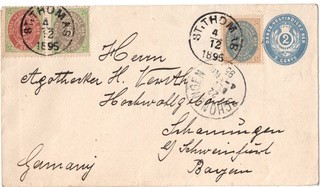 ST. THOMAS
4
12
1895
ST. THOMAS
4
12
1895
2
2 CENTS
Herrn
Apotheker H.
Hochwohlgeboren
Schonungen
b/ Schweinfurt
Germany
Bayern
SCHONUNGEN